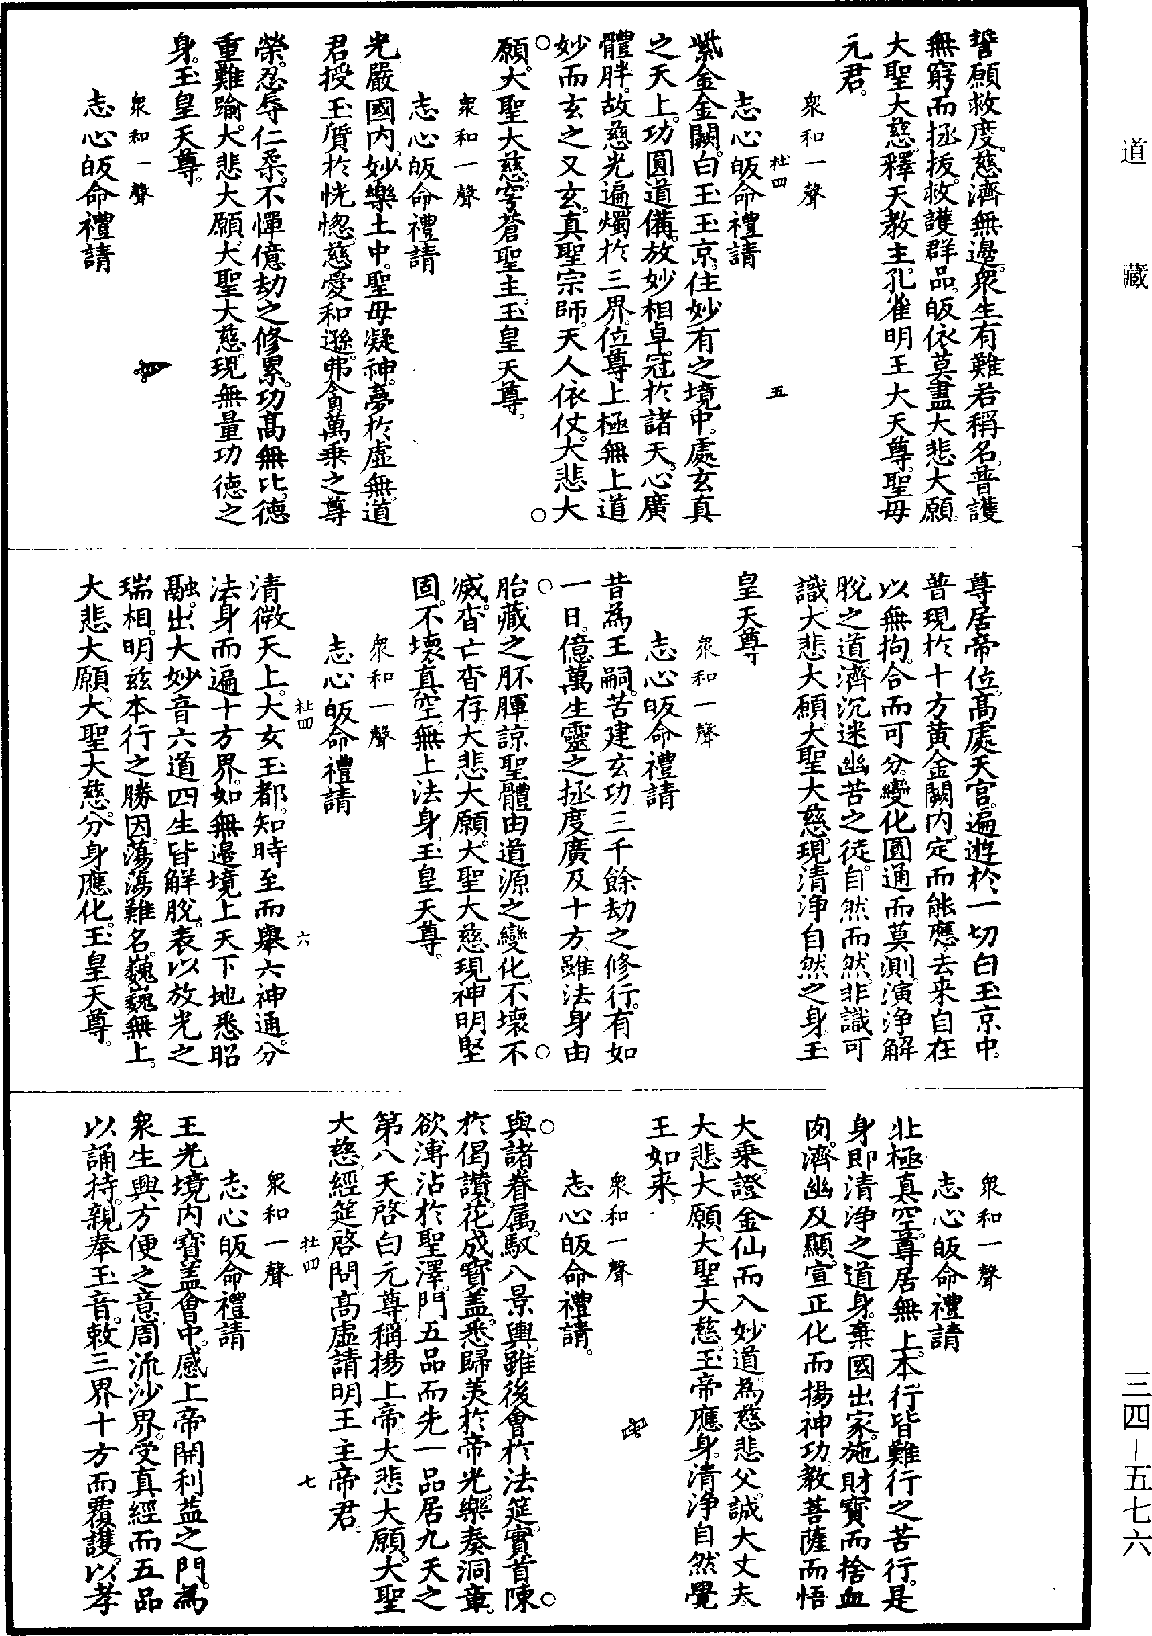 道藏
三四-五七六
誓願救度。慈濟無邊。衆生有難若稱名。普護
無窮而拯拔。救護群品。皈依莫盡大悲大願。
大聖大慈。釋天教主。孔雀明王大天尊。聖毋
元君。
衆和一聲
志心皈命禮請
杜四 五
紫金金闕。白玉玉京。住妙有之境中。處玄真
之天上。功圓道備。放妙相卓。冠於諸天。心廣
體胖。故慈光遍燭於三界。位尊上極無上道
妙而玄之又玄。真聖宗師。天人依仗。大悲大
願。大聖大慈。穹蒼聖主。玉皇天尊。
衆和一聲
志心皈命禮請
光嚴國内。妙樂土中。聖毋凝神。夢於虛無道
君授玉質於恍惚。慈愛和遜。弗貪萬乘之尊
榮。忍辱仁柔。不憚億劫之修累。功高無比。德
重難踰。大悲大願。大聖大慈。現無量功德之
身。玉皇天尊。
衆和一聲
志心皈命禮請
尊居帝位。高處天宫。遍遊於一切白玉京中。
普現於十方黄金闕内。定而能應。去來自在
以無拘。合而可分。變化圓通而莫測。演浄解
脫之道。濟沉迷幽苦之徒。自然而然。非識可
識。大悲大願。大聖大慈。現清浄自然之身。玉
皇天尊
衆和一聲
志心皈命禮請
昔為王嗣。苦建玄功。三千餘劫之修行。有如
一日。億萬生靈之拯度。廣及十方。雖法身由
胎藏之胚腪。諒聖體由道源之變化。不壞不
滅。杳亡杳存。大悲大願。大聖大慈。現神明堅
固。不壞真空。無上法身。玉皇天尊。
衆和一聲
志心皈命禮請
杜四 六
清微天上。大女玉都。知時至而舉六神通。分
法身而遍十方界。如無邊境。上天下地悉昭
融。出大妙音。六道四生皆解脫。表以放光之
瑞相。明兹本行之勝因。蕩蕩難名。巍巍無上。
大悲大願。大聖大慈。分身應化。玉皇天尊。
衆和一聲
志心皈命禮請
北極真空。尊居無上。本行皆難行之苦行。是
身即清浄之道身。棄國出家。施財寳而捨血
肉。濟幽及顯。宣正化而揚神功。教菩薩而悟
大乘。證金仙而入妙道。為慈悲父。誠大丈夫
大悲大願。大聖大慈。玉帝應身。清浄自然覺
王如来。
衆和一聲
志心皈命禮請。
與諸眷属。馭八景輿。雖後會於法筵。實首陳
於偈讚。花成寳盖。悉歸美於帝光。樂奏洞章。
欲溥沾於聖澤。門五品而先一品。居九天之
第八天。啓白元尊。稱揚上帝。大悲大願。大聖
大慈。經筵啓問。高虛請明王主帝君
衆和一聲
志心皈命禮請
杜四 七
王光境内。寳盖會中。感上帝開利益之門。為
衆生興方便之意。周流沙界。受真經而五品
以誦持。親奉玉音。敕三界十方而覆護。以孝